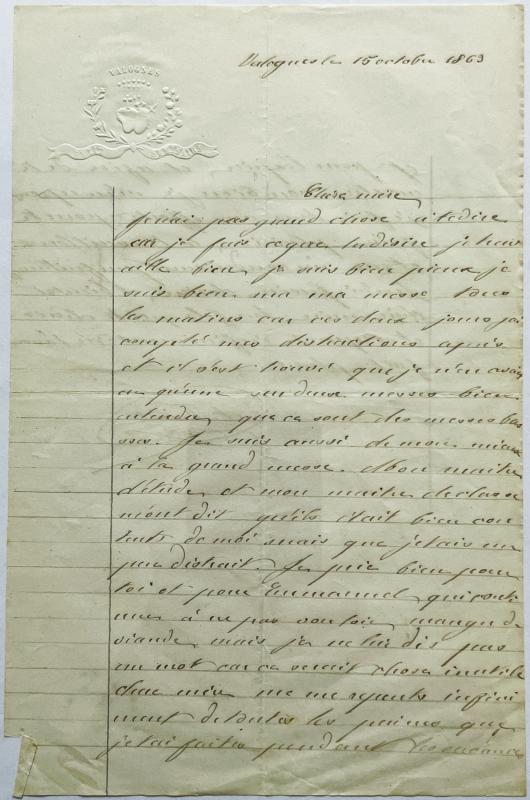 VALOGNES
Valognes le 15 octobre 1863
Chère mère
Je n'ai pas grand chose à te dire
car je fais ce que tu désire je trav
aille bien, je suis bien pieux je
suis bien ma ma messe tous
les matins car ces deux jours j'ai
compté mes distractions après
et il s'est trouvé que je n'en avais
qu'une sur deux messes bien
entendu que ca sont des messes bas
ses. Je suis aussi de mon mieux
à la grand messe. Mon maitre
d'étude et mon maitre de classe
m'ont dit qu'ils était bien con
tent de moi mais que j'etais un
peu distrait. Je prie bien pour
toi et pour Emmanuel qui conti
nue à ne pas vouloir manger de
viande, mais je ne lui dis pas
un mot car ca serait chose inutile
chère mère me me repents infini
ment de toutes les peines que
je t'ai faites pendant les vacances